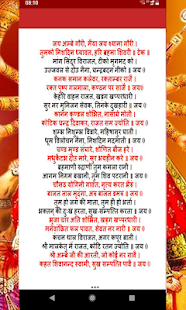 08:10
जय अम्बे गौरी, मैया जय श्यामा गौरी।
तुमको निशदिन ध्यावत, हरि ब्रह्मा शिवरी॥ टेक॥
मांग सिंदूर विराजत, टीको मृगमद को।
उज्ज्वल से दोउ नैना, चन्द्रबदन नीको॥ जय॥
कनक समान कलेवर, रक्ताम्बर राजै।
रक्त पुष्प गलमाला, कण्ठन पर साजै॥ जय॥
केहरि वाहन राजत, खड़ग खप्परधारी।
सुर नर मुनिजन सेवक, तिनके दुखहारी॥ जय॥
कानन कुण्डल शोभित, नासाग्रे मोती।
कोटिक चन्द्र दिवाकर, राजत सम ज्योति॥ जय॥
शुम्भ निशुम्भ विडारे, महिषासुर घाती।
धूम्र विलोचन नैना, निशदिन मदमाती॥ जय॥
चण्ड मुण्ड संघारे, शोणित बीज हरे।
मधुकैटभ दोउ मारे, सुर भयहीन करे॥ जय॥
ब्रहमाणी रुद्राणी तुम कमला रानी।
आगम निगम बखानी, तुम शिव पटरानी॥ जय॥
चौंसठ योगिनी गावत, नृत्य करत भैरूं।
बाजत ताल मृदंगा, अरु बाजत डमरू॥ जय॥
तुम हो जग की माता, तुम ही हो भर्ता।
भक्तन् की दुःख हरता, सुख-सम्पत्ति करता॥ जय॥
भुजा चार अति शोभित, खड़ग खप्परधारी।
मनवांछित फल पावत, सेवत नर नारी॥ जय॥
कंचन थाल विराजत, अगर कपूर बाती।
श्री मालकेतु में राजत, कोटि रतन ज्योति॥ जय॥
श्री अम्बे जी की आरती, जो कोई नर गावै।
कहत शिवानन्द स्वामी, सुख सम्पत्ति पावै॥ जय॥